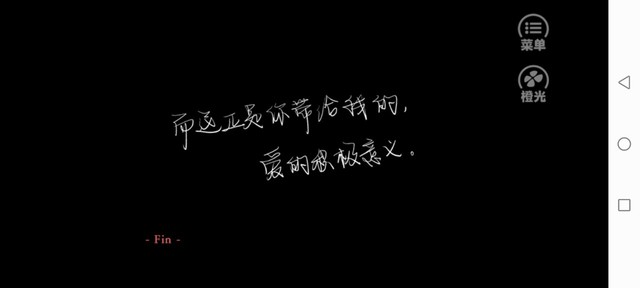 菜单
橙光
而这正是你带给我的，
爱的积极意义。
- Fin -